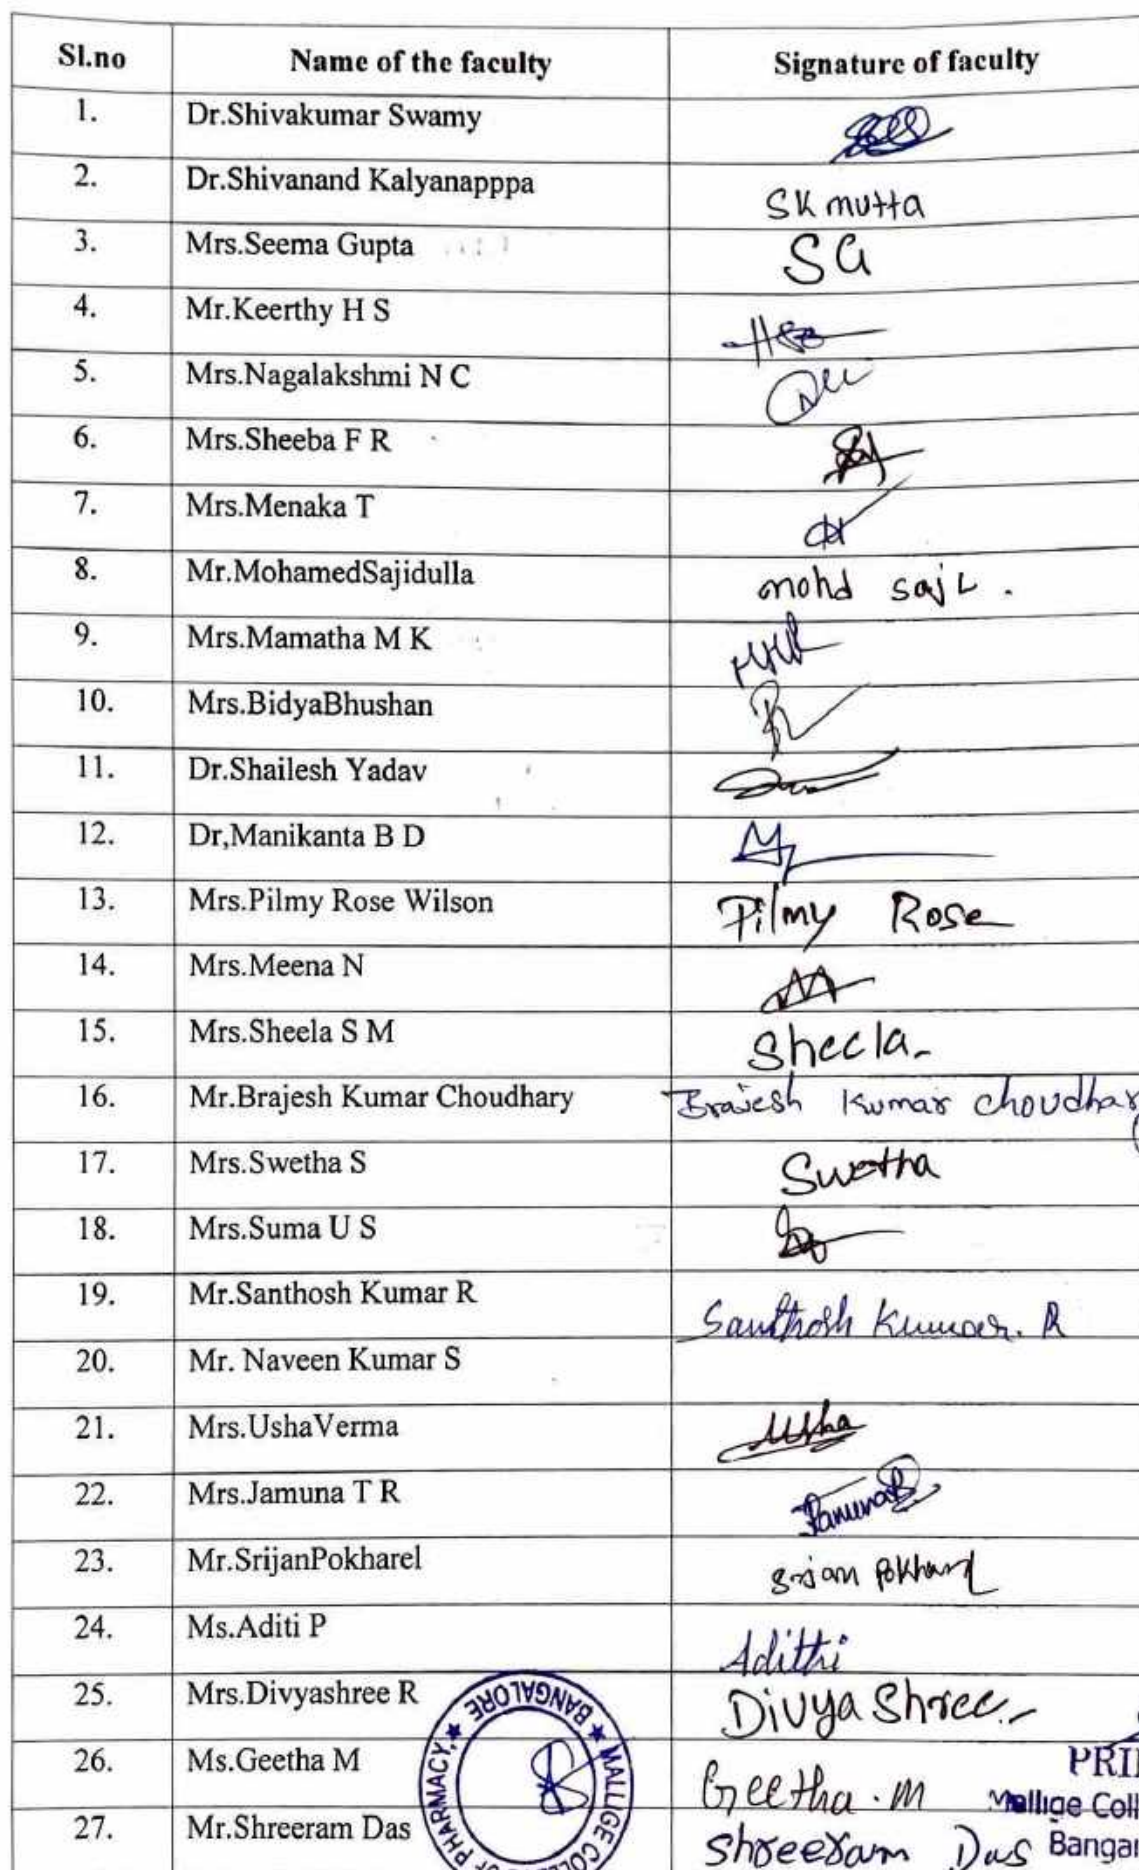 Sl.no Name of the faculty Signature of faculty
1. Dr.Shivakumar Swamy
2. Dr.Shivanand Kalyanapppa SK mutta
3. Mrs.Seema Gupta SG
4. Mr.Keerthy H S
5. Mrs.Nagalakshmi N C
6. Mrs.Sheeba F R
7. Mrs.Menaka T
8. Mr.MohamedSajidulla mohd saji.
9. Mrs.Mamatha M K
10. Mrs.BidyaBhushan
11. Dr.Shailesh Yadav
12. Dr,Manikanta B D
13. Mrs.Pilmy Rose Wilson Pilmy Rose
14. Mrs.Meena N
15. Mrs.Sheela S M Sheela
16. Mr.Brajesh Kumar Choudhary Brajesh Kumar Choudhar
17. Mrs.Swetha S Swetha
18. Mrs.Suma U S
19. Mr.Santhosh Kumar R Santhosh Kumar. R
20. Mr. Naveen Kumar S
21. Mrs.UshaVerma Usha
22. Mrs.Jamuna T R Jamuna
23. Mr.SrijanPokharel Srijan Pokharel
24. Ms.Aditi P Adithi
25. Mrs.Divyashree R Divya Shree
26. Ms.Geetha M Geetha. M
27. Mr.Shreeram Das Shreeram Das
★ MALLIGE COLL OF PHARMACY, ★ BANGALORE
PRI
Mallige Coll
Bangar